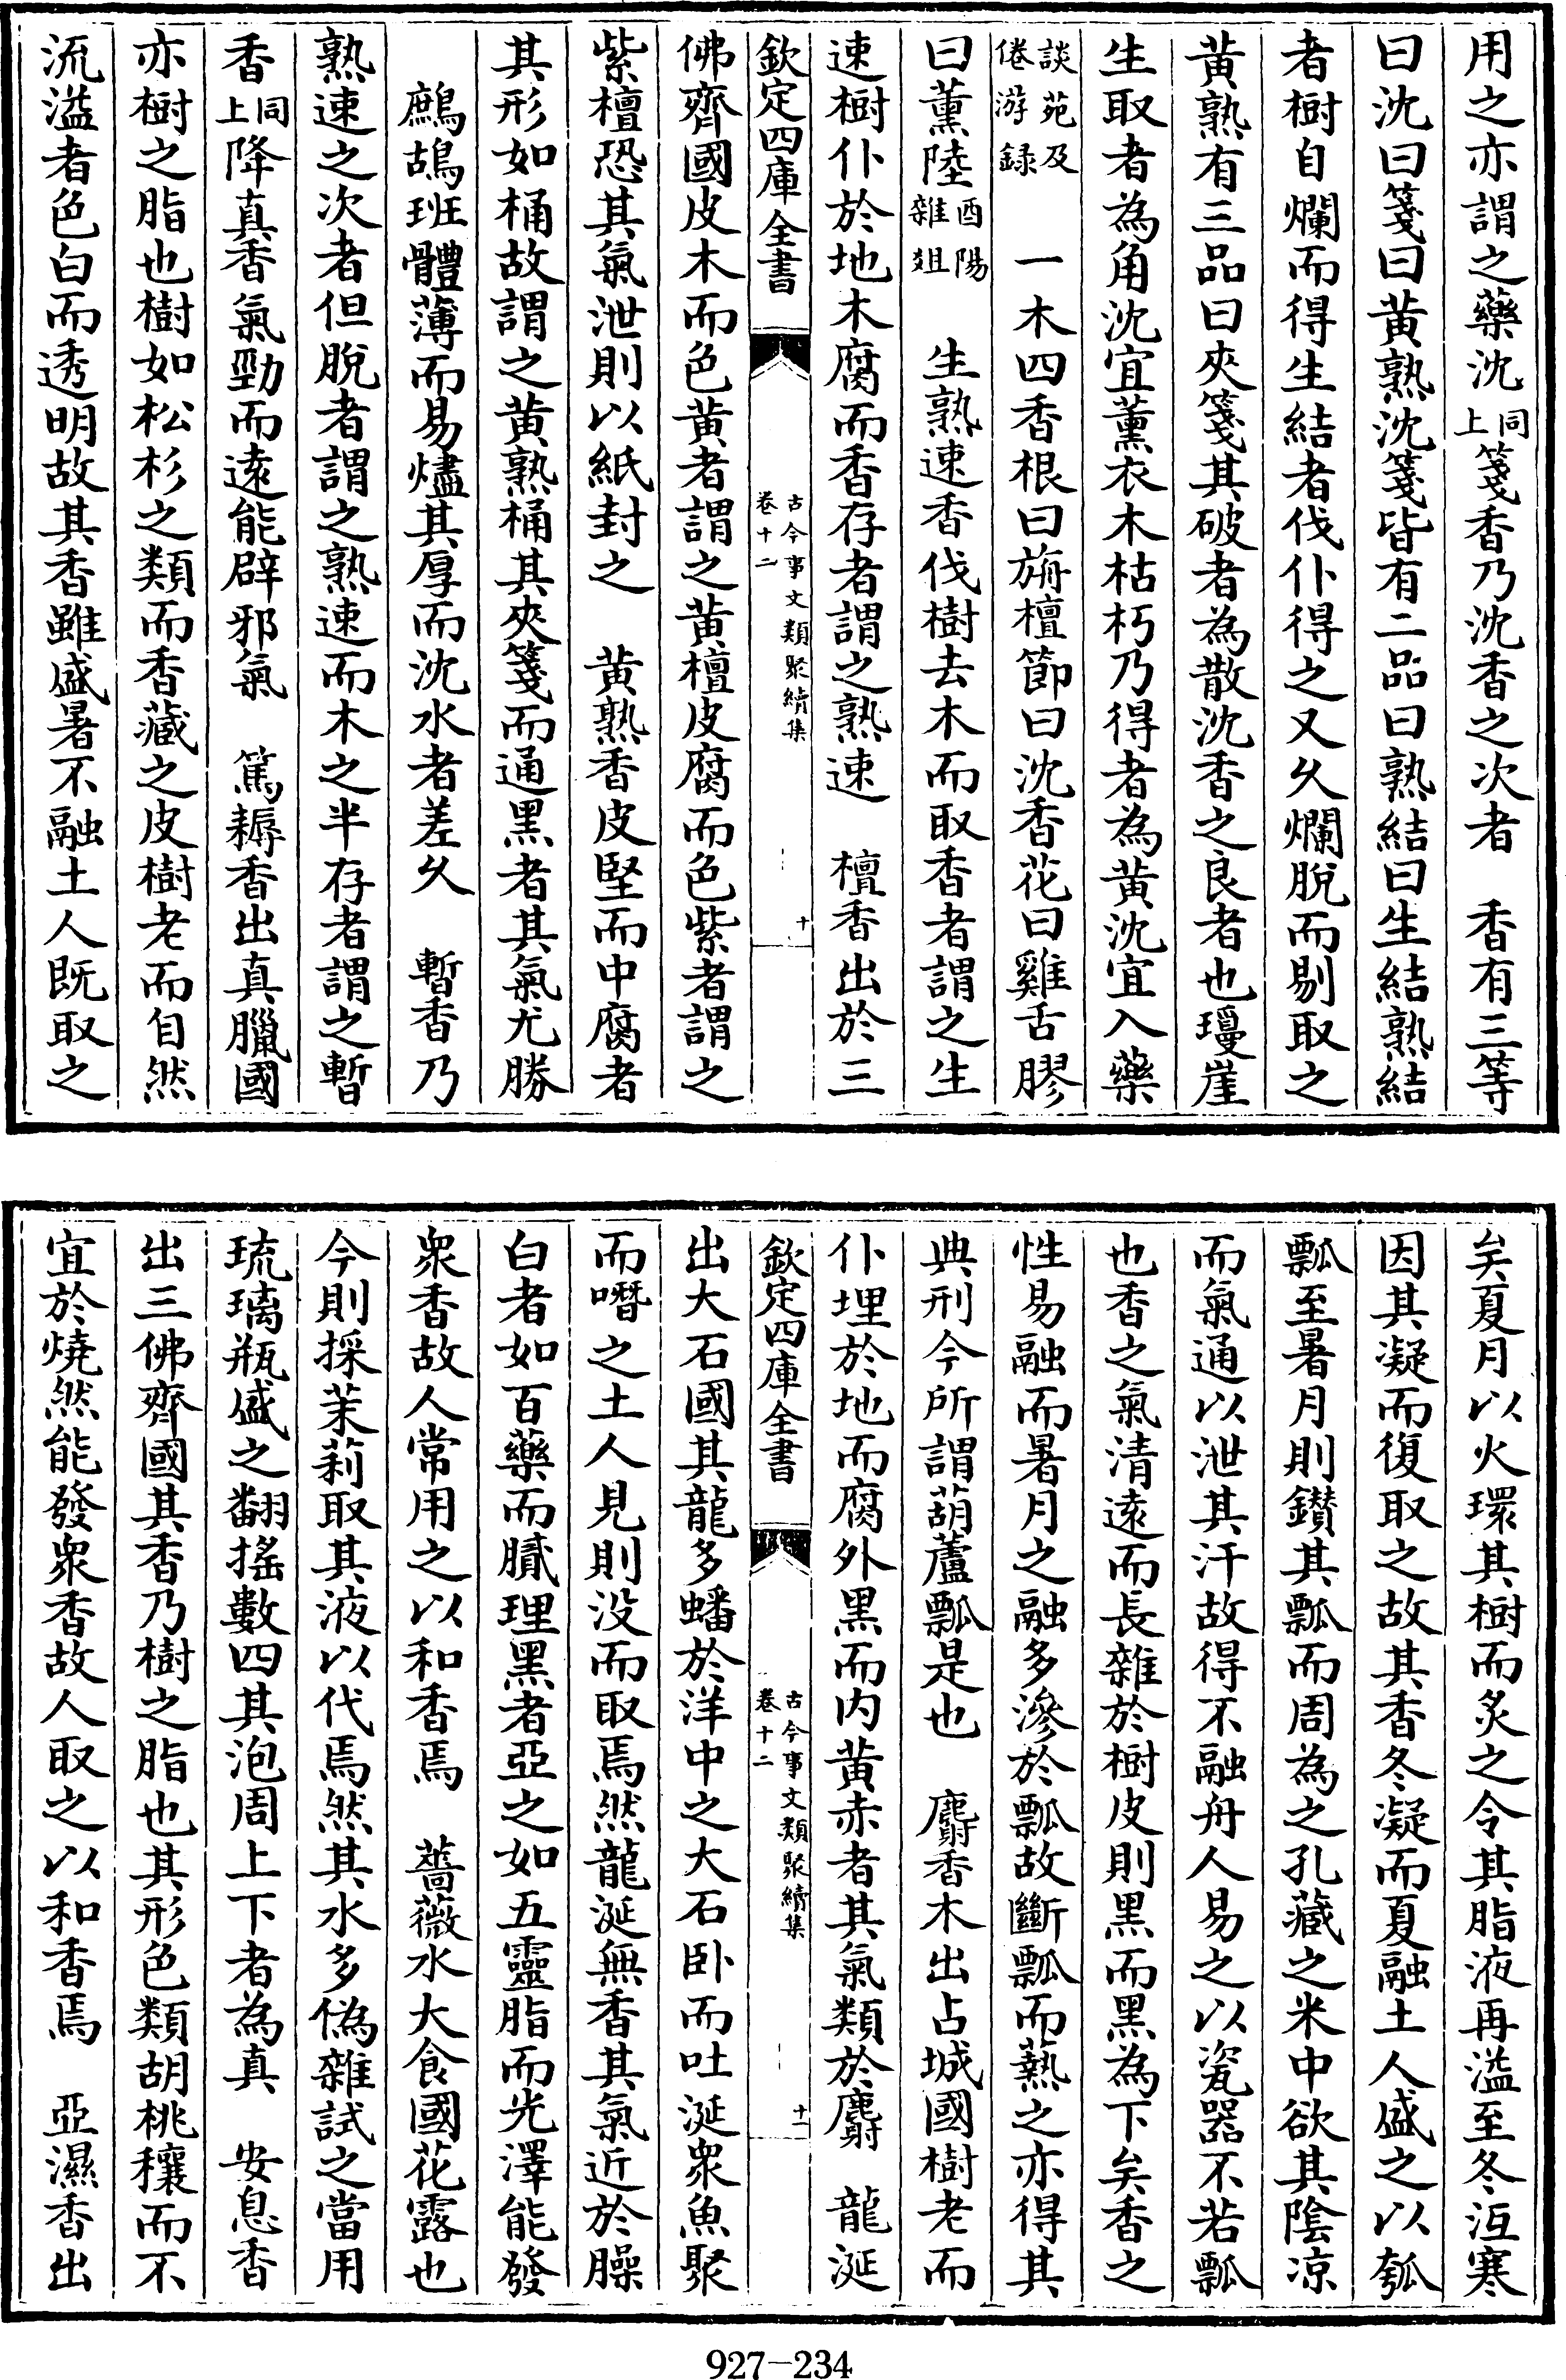 用之亦謂之藥沈同上箋香乃沈香之次者　香有三等
曰沈曰箋曰黄熟沈箋皆有二品曰熟結曰生結熟結
者樹自爛而得生結者伐仆得之又乆爛脫而剔取之
黄熟有三品曰夾箋其破者為散沈香之良者也瓊崖
生取者為角沈宜薰衣木枯朽乃得者為黄沈宜入藥
談苑及倦游録　一木四香根曰旃檀節曰沈香花曰雞舌膠
曰薰陸酉陽雜俎　生熟速香伐樹去木而取香者謂之生
速樹仆於地木腐而香存者謂之熟速　檀香出於三
欽定四庫全書
古今事文類聚續集
卷十二
十
佛齊國皮木而色黄者謂之黄檀皮腐而色紫者謂之
紫檀恐其氣泄則以紙封之　黄熟香皮堅而中腐者
其形如桶故謂之黄熟桶其夾箋而通黑者其氣尤勝
鷓鴣班體薄而易燼其厚而沈水者差乆　暫香乃
熟速之次者但脫者謂之熟速而木之半存者謂之暫
香同上降真香氣勁而逺能辟邪氣　篤耨香出真臘國
亦樹之脂也樹如松杉之類而香藏之皮樹老而自然
流溢者色白而透明故其香雖盛暑不融土人既取之
矣夏月以火環其樹而炙之令其脂液再溢至冬沍寒
因其凝而復取之故其香冬凝而夏融土人盛之以瓠
瓢至暑月則鑚其瓢而周為之孔藏之米中欲其陰凉
而氣通以泄其汗故得不融舟人易之以瓷器不若瓢
也香之氣清逺而長雜於樹皮則黑而黑為下矣香之
性易融而暑月之融多滲於瓢故斷瓢而爇之亦得其
典刑今所謂葫蘆瓢是也　麝香木出占城國樹老而
仆埋於地而腐外黑而内黄赤者其氣類於麝　龍涎
欽定四庫全書
古今事文類聚續集
卷十二
十一
出大石國其龍多蟠於洋中之大石卧而吐涎衆魚聚
而噆之土人見則没而取焉然龍涎無香其氣近於臊
白者如百藥而膩理黑者亞之如五靈脂而光澤能發
衆香故人常用之以和香焉　薔薇水大食國花露也
今則採茉莉取其液以代焉然其水多偽雜試之當用
琉璃瓶盛之翻搖數四其泡周上下者為真　安息香
出三佛齊國其香乃樹之脂也其形色類胡桃穰而不
宜於燒然能發衆香故人取之以和香焉　亞濕香出
927-234